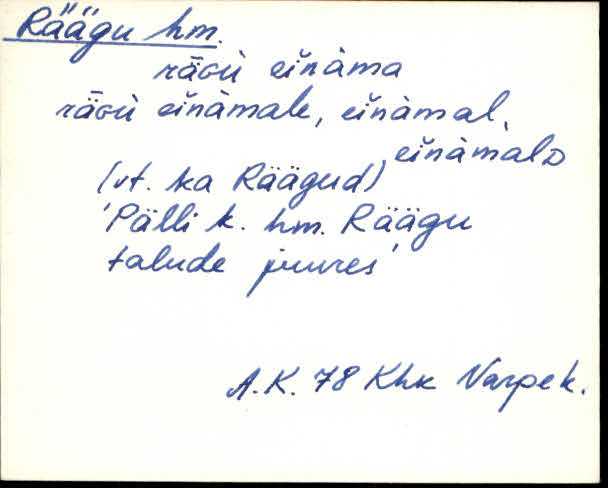 Räägu hm.
rāɢù eĭnàma
rāɢù eĭnàmale, eĭnàmal,
eĭnàmalᴅ
(vt. ka Räägud)
'Pälli k. hm. Räägu
talude juures'
A.K. 78 Khk Varpe k.